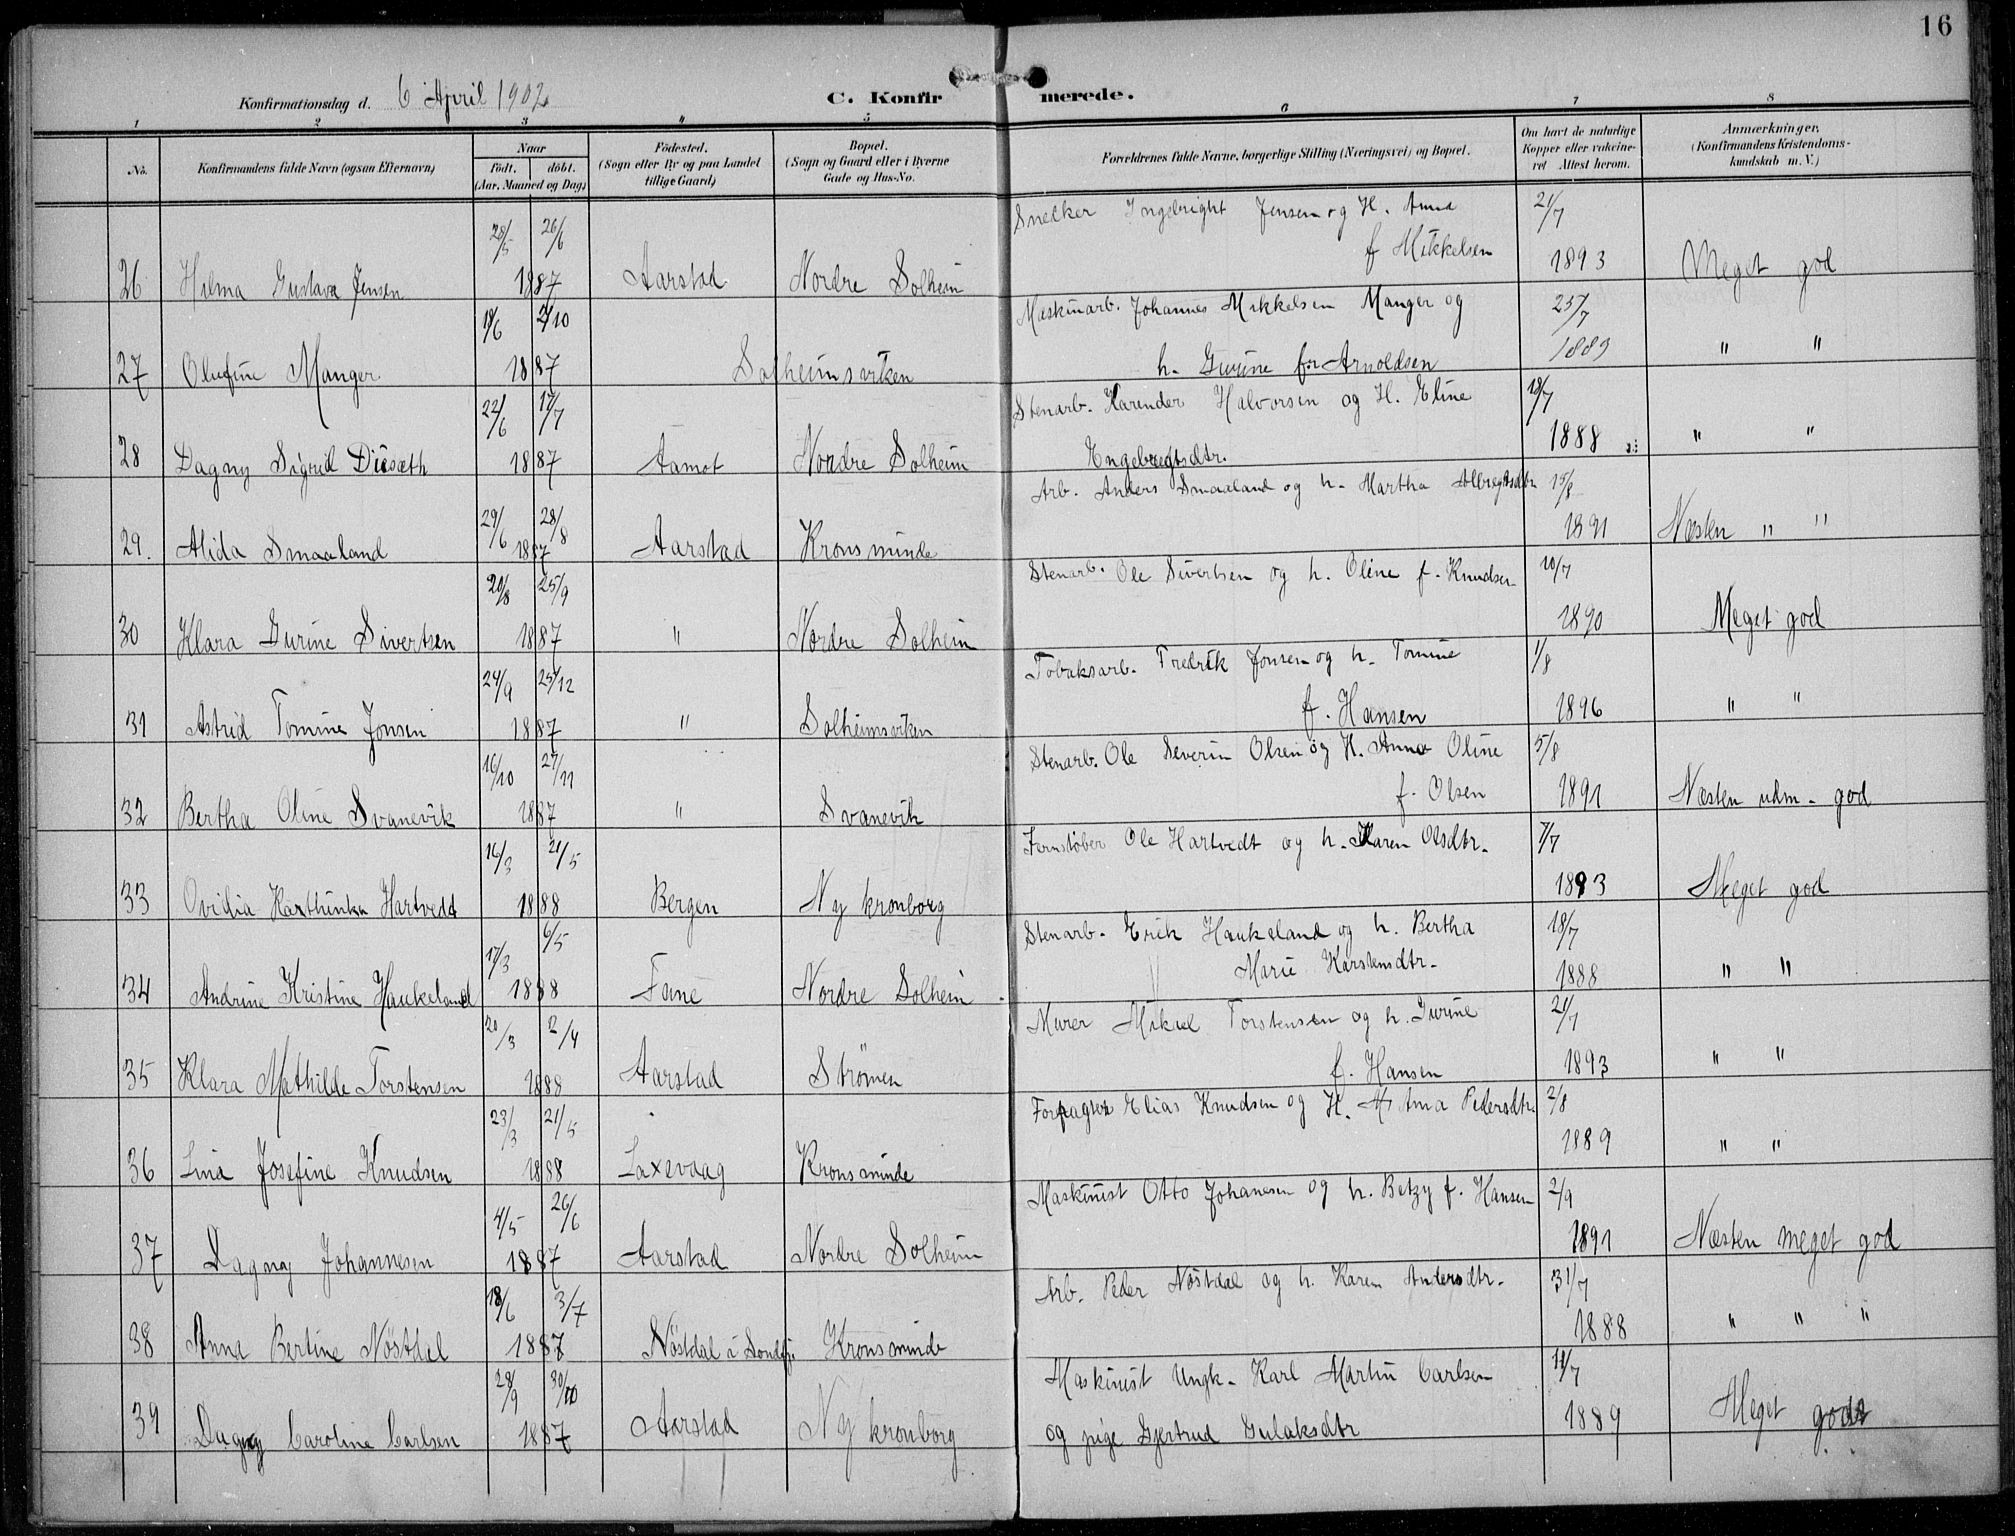 16
Konfirmationsdag d. 6 April 1902
C. Konfirmerede.
1 2 3 " 5 6 7 8
No.
Konfirmandens fulde Navn (ogsaa Efternavn)
Naar
født. døbt.
(Aar, Maaned og Dag)
Fødested.
(Sogn eller By og paa Landet
tillige Gaard)
Bopæl.
(Sogn og Gaard eller i Byerne
Gade og Hus-No.
Forældrenes fulde Navne, borgerlige Stilling (Næringsvei) og Bopæl.
Om havt de naturlige
Kopper eller vaccine-
ret Attest herom.
Anmærkninger.
(Konfirmandens Kristendoms-
kundskab m. V.)
28/5 26/6 Snelker Ingebright Jensen og H. Anna 21/7
f Mikkelsen
26 Hilma Gustava Jensen 1887 Aarstad Nordre Solheim 1893 Meget god
18/6 2/10 Maskinarb. Johannes Mikkelsen Manger og 25/7
27 Olufine Manger 1887 Solheimsviken h. Gurine f. Arnoldsen 1889 " "
22/6 17/7 Stenarb. Karender Halvorsen og H. Eline 18/7
28 Dagny Sigrid Diesæth 1887 Aamot Nordre Solheim Engebregtsdtr. 1888 " "
29/6 28/8 Arb. Anders Smaaland og h. Martha Olbregtsdtr 15/8
29. Alida Smaaland 1887 Aarstad Kronsminde 1891 Næsten " "
20/8 25/9 Stenarb. Ole Sivertsen og h. Oline f. Knudsen 10/7
30 Klara Gurine Sivertsen 1887 " Nordre Solheim 1890 Meget god
24/9 25/12 Tobaksarb. Fredrik Jonsen og h. Tomine 1/8
31 Astrid Tomine Jonsen 1887 " Solheimsviken f. Hansen 1896 " "
16/10 27/11 Stenarb. Ole Severin Olsen og H. Anna Oline 5/8
32 Bertha Oline Svanevik 1887 " Svanevik f. Olsen 1891 Næsten udm. god
16/3 21/5 Jernstøber Ole Hartvedt og h. Karen Olsdtr. 7/7
33 Ovidia Kathinka Hartvedt 1888 Bergen Ny kronborg 1893 Meget god
17/3 6/5 Stenarb. Erik Haukeland og h. Bertha 18/7
Marie Karstensdtr.
34 Andrine Kristine Haukeland 1888 Fane Nordre Solheim 1888 " "
20/3 2/4 Murer Mikael Torstensen og h. Gurine 21/7
35 Klara Mathilde Torstensen 1888 Aarstad Strømen f. Hansen 1893 " "
23/3 21/5 Forpagter Elias Knudsen og H. Anna Pedersdtr. 2/8
36 Lina Josefine Knudsen 1888 Laxevaag Kronsminde 1889 " "
4/5 26/6 Maskinist Otto Johanesen og h. Betzy f. Hansen 2/9
37 Dagny Johannesen 1887 Aarstad Nordre Solheim 1891 Næsten meget god
18/6 3/7 Arb. Peder Nøstdal og h. Karen Andersdtr. 31/7
38 Anna Bertine Nøstdal 1887 Nøstdal i Søndfj. Kronsminde 1888 " " "
28/9 30/10 Maskinist Ungk. Karl Martin Carlsen 11/7
39 Dagny Caroline Carlsen 1887 Aarstad Ny kronborg og pige Gjertrud Gulaksdtr 1889 Meget god